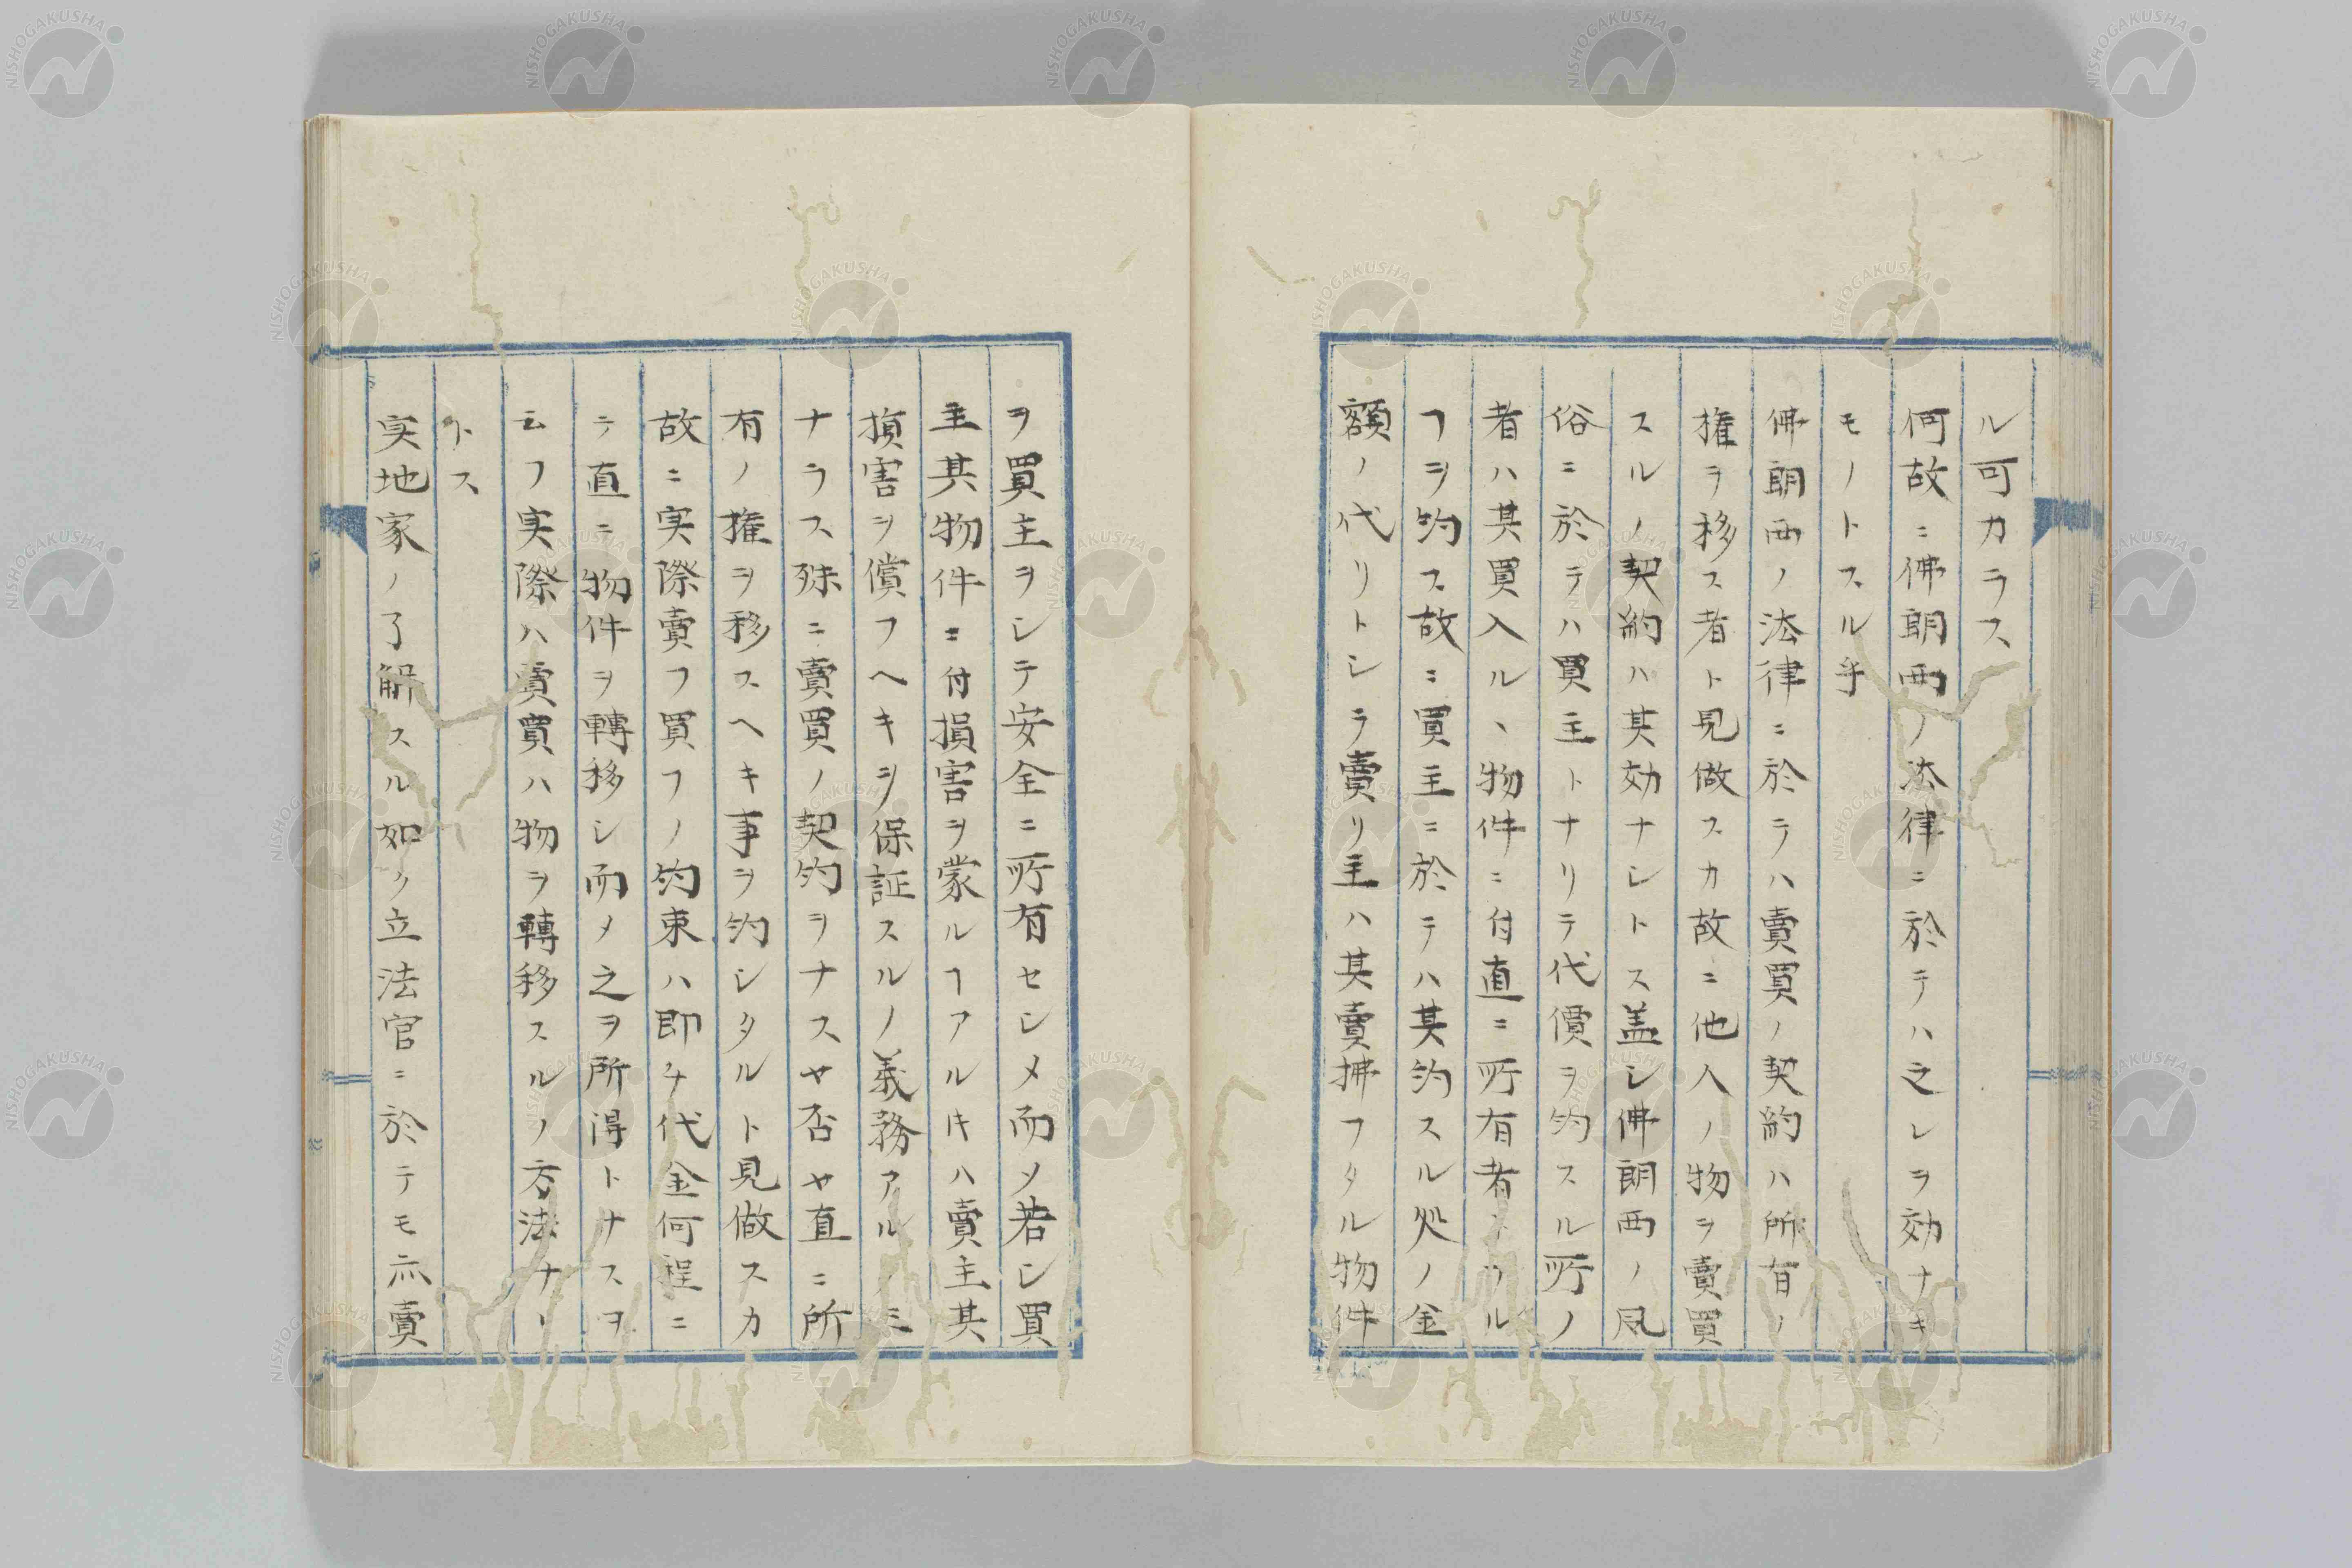 ル可カラス
何故ニ佛朗西ノ法律ニ於テハ之レヲ効ナキ
モノトスル乎
佛朗西ノ法律ニ於テハ賣買ノ契約ハ所有ノ
権ヲ移ス者ト見做スカ故ニ他人ノ物ヲ賣買
スルノ契約ハ其効ナシトス盖シ佛朗西ノ風
俗ニ於テハ買主トナリテ代價ヲ約スル所ノ
者ハ其買入ル、物件ニ付直ニ所有者トナル
ヿヲ約ス故ニ買主ニ於テハ其約スル処ノ金
額ノ代リトシテ賣リ主ハ其賣拂フタル物件
ヲ買主ヲシテ安全ニ所有セシメ而メ若シ買
主其物件ニ付損害ヲ蒙ルヿアルキハ賣主其
損害ヲ償フヘキヲ保証スルノ義務アルノミ
ナラス殊ニ賣買ノ契約ヲナスヤ否ヤ直ニ所
有ノ権ヲ移スヘキ事ヲ約シタルト見做スカ
故ニ実際賣フ買フノ約束ハ即チ代金何程ニ
テ直ニ物件ヲ轉移シ而メ之ヲ所得トナスヲ
云フ実際ハ賣買ハ物ヲ轉移スルノ方法ナリ
トス
実地家ノ了解スル如ク立法官ニ於テモ亦賣
NISHOGAKUSHA